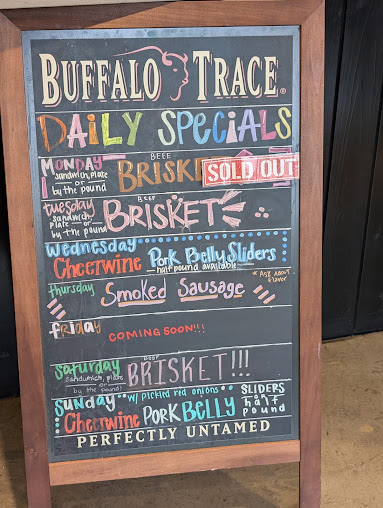 BUFFALO TRACE®
DAILY SPECIALS
MONDAY
sandwich, plate
or
by the pound
BEEF
BRISKE
SOLD OUT
tuesday
sandwich,
plate or
by the pound
BEEF
BRISKET
wednesday
Cheerwine Pork Belly Sliders
half pound available
thursday
Smoked Sausage
* Ask About
flavor
friday
COMING SOON!!!
saturday
sandwich, plate
or
by the pound!
BEEF
BRISKET!!!
SUNDAY
w/ pickled red onions
Cheerwine PORK BELLY
SLIDERS
or
half
pound
PERFECTLY UNTAMED